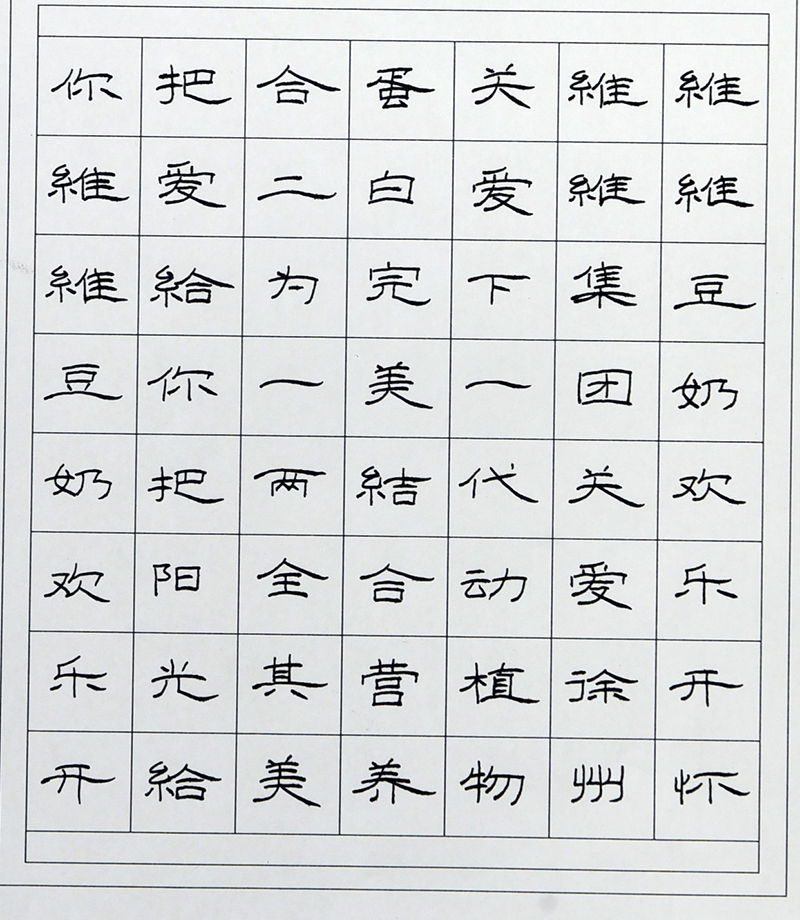 維維豆奶欢乐开怀
維維集团关爱徐州
关爱下一代动植物
蛋白完美結合营养
合二为一两全其美
把爱給你把阳光給
你維維豆奶欢乐开